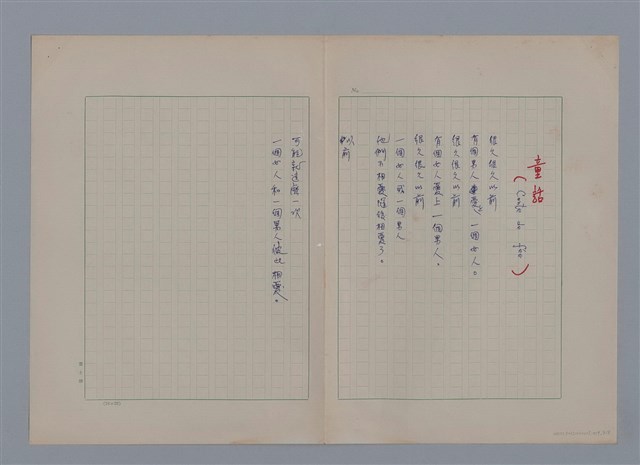 童話
很久很久以前
有個男人愛一個女人。
很久很久以前
有個女人愛上一個男人。
很久很久以前
一個女人或一個男人
他們不相愛
以前
可能就這麼一次
一個女人和一個男人彼此相愛。